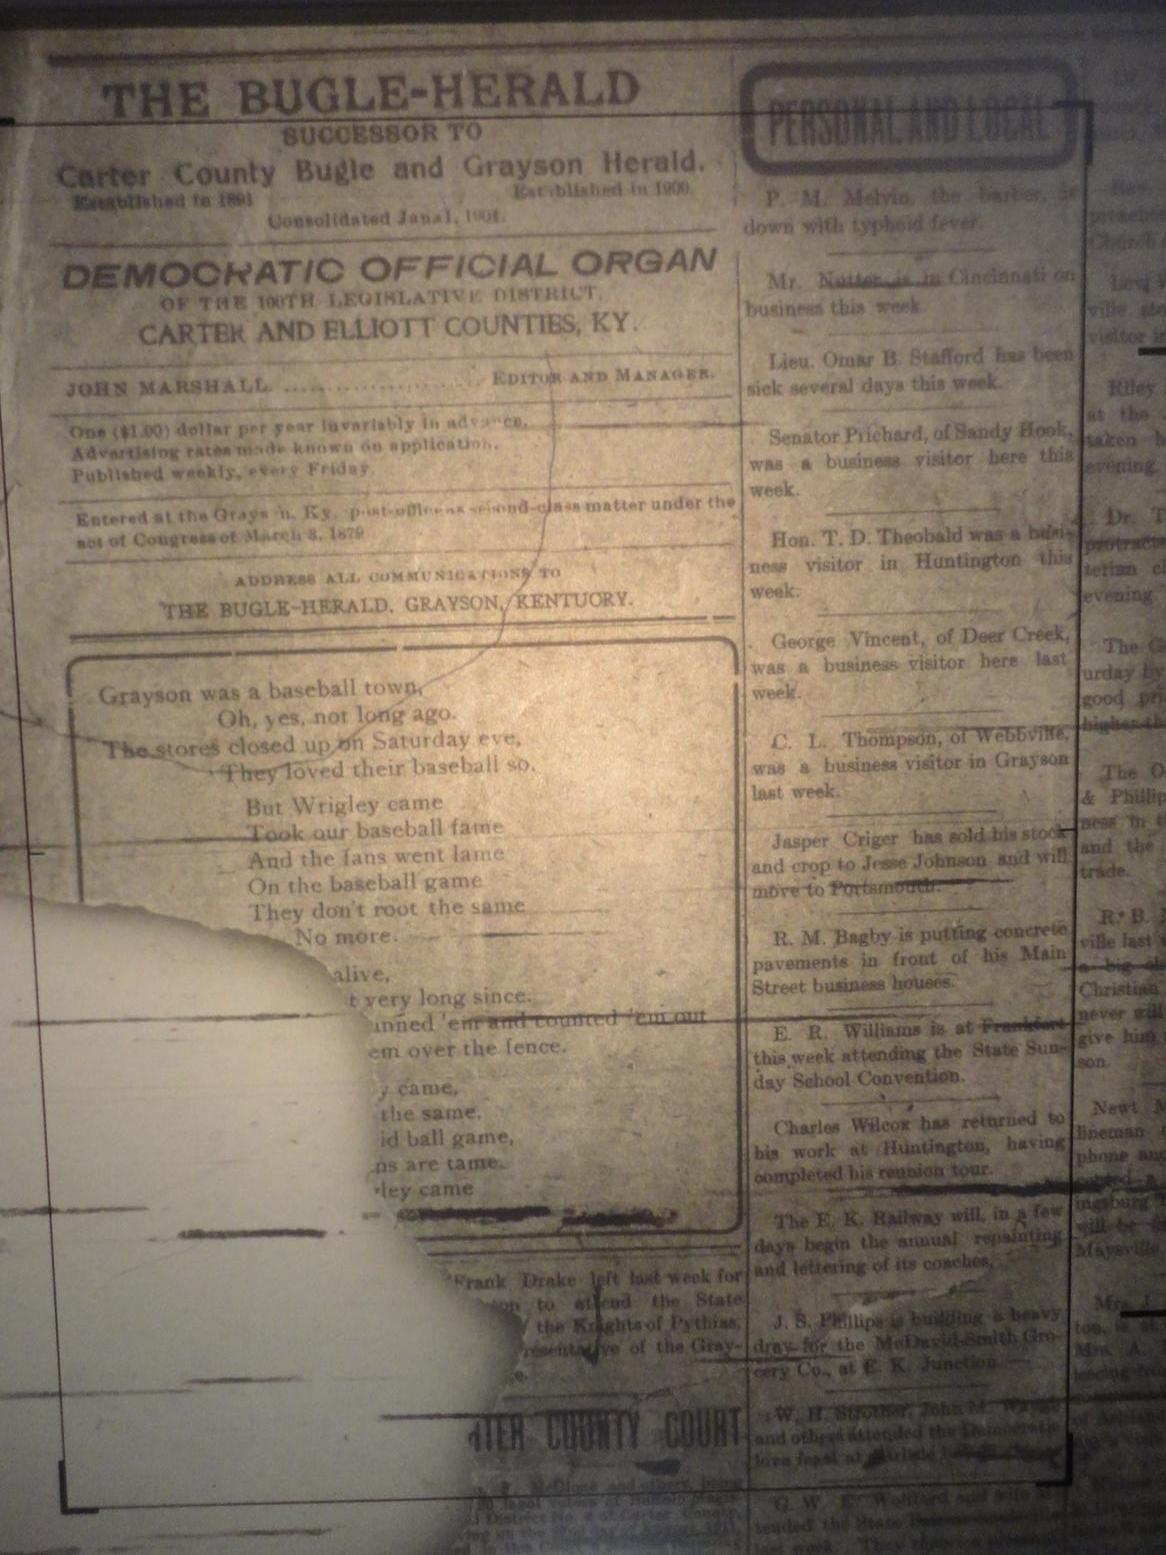 THE BUGLE-HERALD
SUCCESSOR TO
Carter County Bugle and Grayson Herald.
Established in 1891 Established in 1900.
Consolidated Jan. 1, 1904.
DEMOCRATIC OFFICIAL ORGAN
OF THE 100TH LEGISLATIVE DISTRICT.
CARTER AND ELLIOTT COUNTIES, KY.
JOHN MARSHALL .................... EDITOR AND MANAGER.
One ($1.00) dollar per year invariably in advance.
Advertising rates made known on application.
Published weekly, every Friday.
Entered at the Grayson, Ky. post-office as second-class matter under the
act of Congress of March 3, 1879
ADDRESS ALL COMMUNICATIONS TO
THE BUGLE-HERALD, GRAYSON, KENTUCRY.
Grayson was a baseball town,
Oh, yes, not long ago.
The stores closed up on Saturday eve,
They loved their baseball so.
But Wrigley came
Took our baseball fame
And the fans went lame
On the baseball game
They don't root the same
No more.
alive,
t very long since.
inned 'em and counted 'em out
em over the fence.
y came,
the same,
id ball game,
ns are tame.
ley came
Frank Drake left last week for
on to attend the State
the Knights of Pythias,
resentative of the Gray-
e.
TER COUNTY COURT
PERSONAL AND LOCAL
P. M. Melvin, the barber, is
down with typhoid fever.
Mr. Nutter is in Cincinnati on
business this week.
Lieu. Omar B. Stafford has been
sick several days this week.
Senator Prichard, of Sandy Hook,
was a business visitor here this
week.
Hon. T. D. Theobald was a busi-
ness visitor in Huntington this
week.
George Vincent, of Deer Creek,
was a business visitor here last
week.
C. L. Thompson, of Webbville,
was a business visitor in Grayson
last week.
Jasper Criger has sold his stock
and crop to Jesse Johnson and will
move to Portsmouth.
R. M. Bagby is putting concrete
pavements in front of his Main
Street business houses.
E. R. Williams is at Frankfort
this week attending the State Sun-
day School Convention.
Charles Wilcox has returned to
his work at Huntington, having
completed his reunion tour.
The E. K. Railway will, in a few
days begin the annual repainting
and lettering of its coaches.
J. S. Phillips is building a heavy
dray for the McDavid-Smith Gro-
cery Co., at E. K. Junction.
W. H. Strother, John M. Waugh
and others attended the Democratic
love feast at
G. W. E. Wolfford and wife
tended the State
preached
Church
ville
visitor
Riley
at the
taken
evening
Dr. T
protracte
terian
evening
The
urday by
good
higher
The O
& Phillip
ness in
and the
trade.
R. B.
ville last
a big
Christian
never will
give him
son.
Newt
lineman
phone and
ingsburg
will be
Maysville
Mrs.
Mrs. A.